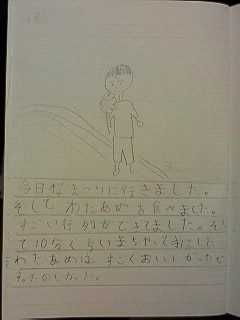 今日桜まつりに行きました。
そして わたあめを食べました。
すごい行列ができてました。そし
て10分ぐらいまちやっと手にした
わたあめは、すごくおいしかったで
す。たのしかった。